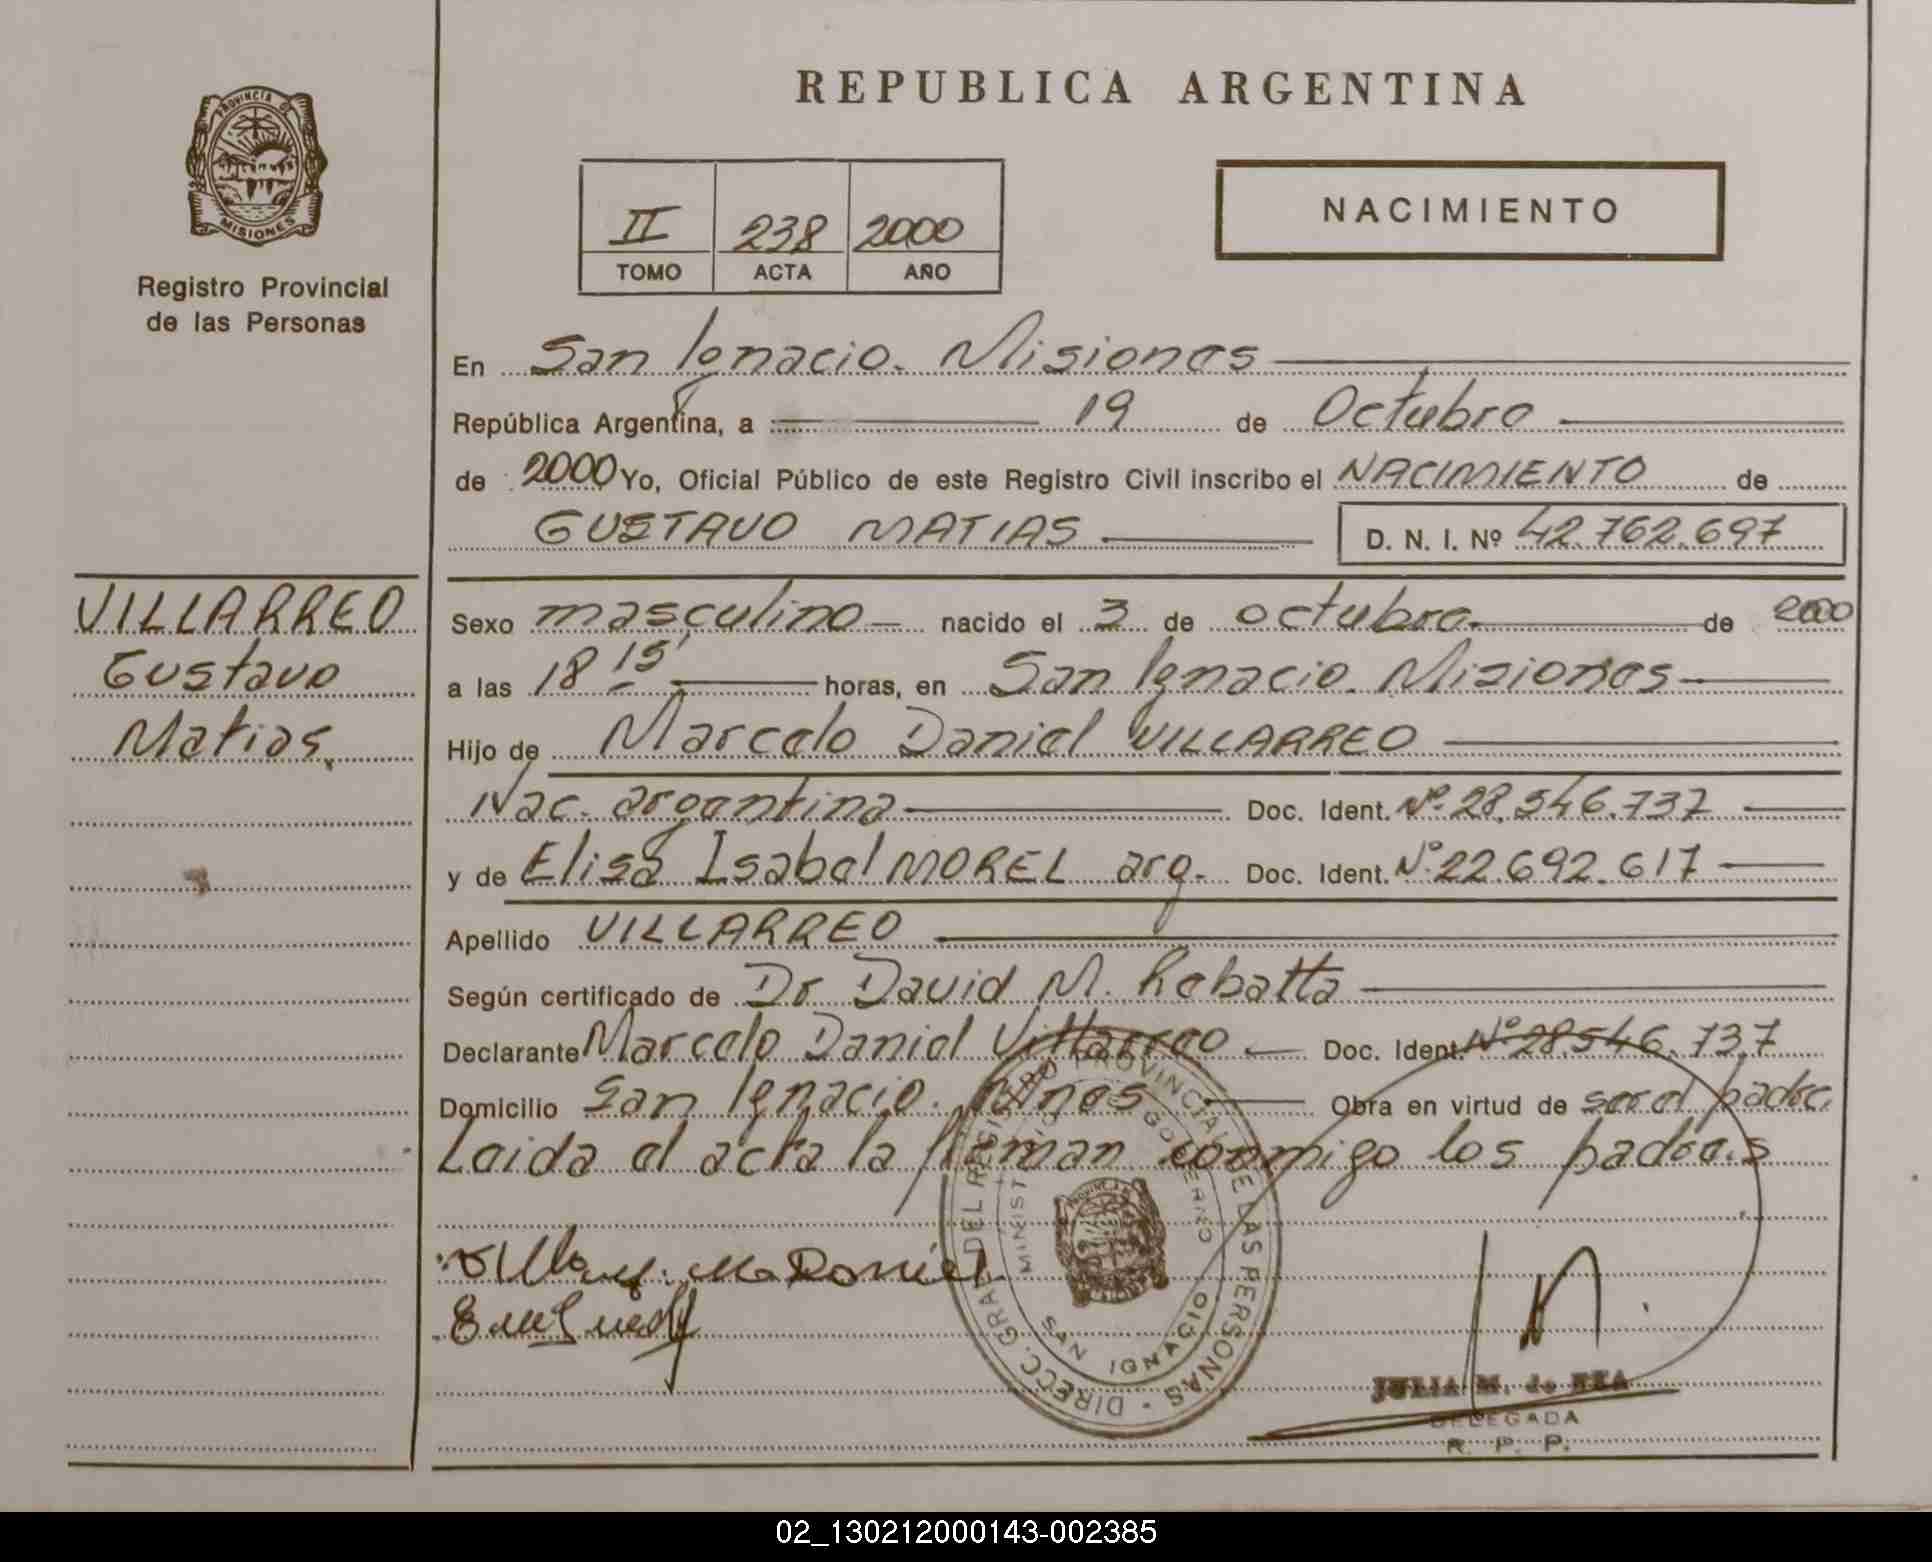 PROVINCIA DE
MISIONES
Registro Provincial
de las Personas
VILLARREO
Gustavo
Matias.
REPUBLICA ARGENTINA
II 238 2000
TOMO ACTA AÑO
NACIMIENTO
En San Ignacio. Misiones
República Argentina, a 19 de Octubre
de 2000 Yo, Oficial Público de este Registro Civil inscribo el NACIMIENTO de
GUSTAVO MATIAS D. N. I. Nº 42.762.697
Sexo masculino nacido el 3 de octubre. de 2000
a las 18 15' horas, en San Ignacio. Misiones
Hijo de Marcelo Daniel VILLARREO
Nac. argentina Doc. Ident. Nº 28.546.737
y de Elisa Isabel MOREL arg. Doc. Ident. Nº 22.692.617
Apellido VILLARREO
Según certificado de Dr David M. Rebatta
Declarante Marcelo Daniel Villarreo Doc. Ident. Nº 28.546.737
Domicilio San Ignacio. Mnes Obra en virtud de ser el padre.
Leida el acta la firman conmigo los padres
DIRECC. GRAL. DEL REGISTRO PROVINCIAL DE LAS PERSONAS
MINISTERIO GOBIERNO
SAN IGNACIO
JULIA M. de REA
DELEGADA
R. P. P.
02_130212000143-002385